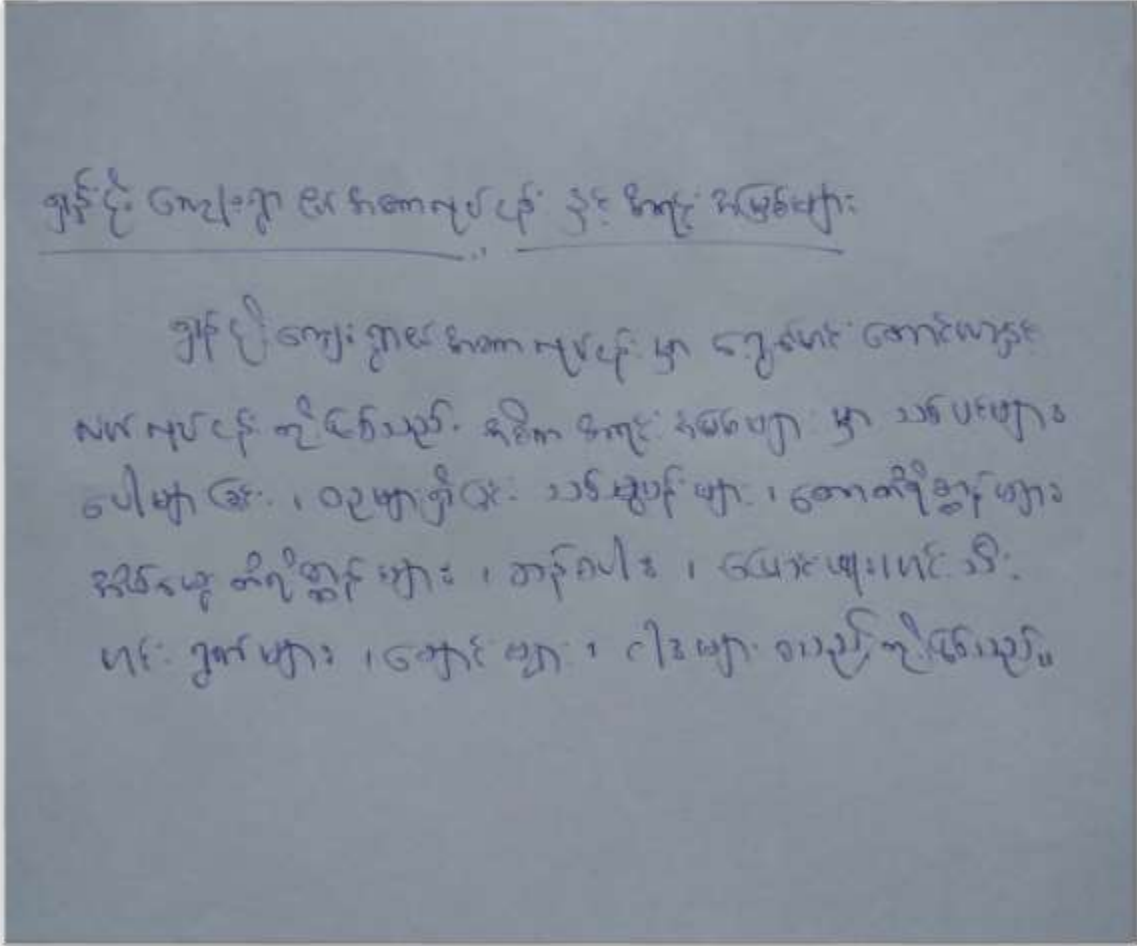 ရှန်ငိုး ကျေးရွာ ၏ အဓိကလုပ်ငန်း နှင့် အရင်းအမြစ်များ
ရှန်ငိုးကျေးရွာ၏ အဓိကလုပ်ငန်းမှာ ရွှေ့ပြောင်း တောင်ယာနှင့်
လယ်လုပ်ငန်း တို့ဖြစ်သည်။ အဓိက အရင်းအမြစ်များ မှာ သစ်ပင်များ
ပေါများခြင်း ၊ ဝဥများရှိခြင်း သစ်ခွပန်းများ ၊ တောတိရိစ္ဆာန်များ
အိမ်မွေး တိရိစ္ဆာန် များ ၊ စပါး ၊ ပြောင်းဖူး ၊ ဟင်းသီး
ဟင်းရွက်များ ၊ ချောင်းများ ၊ ငါးများ စသည်တို့ဖြစ်သည်။